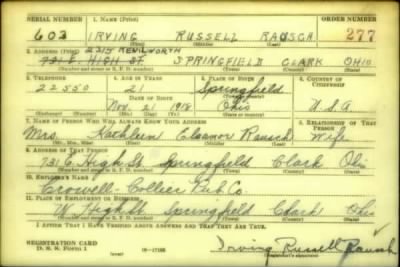 SERIAL NUMBER 1. NAME (Print) ORDER NUMBER
603 IRVING RUSSELL RAUSCH 277
(First) (Middle) (Last)
2315 KENILWORTH
2. ADDRESS (Print)
731 E. HIGH ST. SPRINGFIELD CLARK OHIO
(Number and street or R. F. D. number) (Town) (County) (State)
3. TELEPHONE 4. AGE IN YEARS 5. PLACE OF BIRTH 6. COUNTRY OF CITIZENSHIP
22550 21 Springfield
DATE OF BIRTH
Nov. 21 1918 Ohio U.S.A.
(Mo.) (Day) (Yr.) (State or country)
7. NAME OF PERSON WHO WILL ALWAYS KNOW YOUR ADDRESS 8. RELATIONSHIP OF THAT PERSON
Mrs. Kathleen Eleanor Rausch Wife
(Mr., Mrs., Miss) (First) (Middle) (Last)
9. ADDRESS OF THAT PERSON
731 E. High St Springfield Clark Ohio
(Number and street or R. F. D. number) (Town) (County) (State)
10. EMPLOYER'S NAME
Crowell-Collier Pub Co.
11. PLACE OF EMPLOYMENT OR BUSINESS
W High St Springfield Clark Ohio
(Number and street or R. F. D. number) (Town) (County) (State)
I AFFIRM THAT I HAVE VERIFIED ABOVE ANSWERS AND THAT THEY ARE TRUE.
REGISTRATION CARD
D. S. S. Form 1 16—17105 Irving Russell Rausch